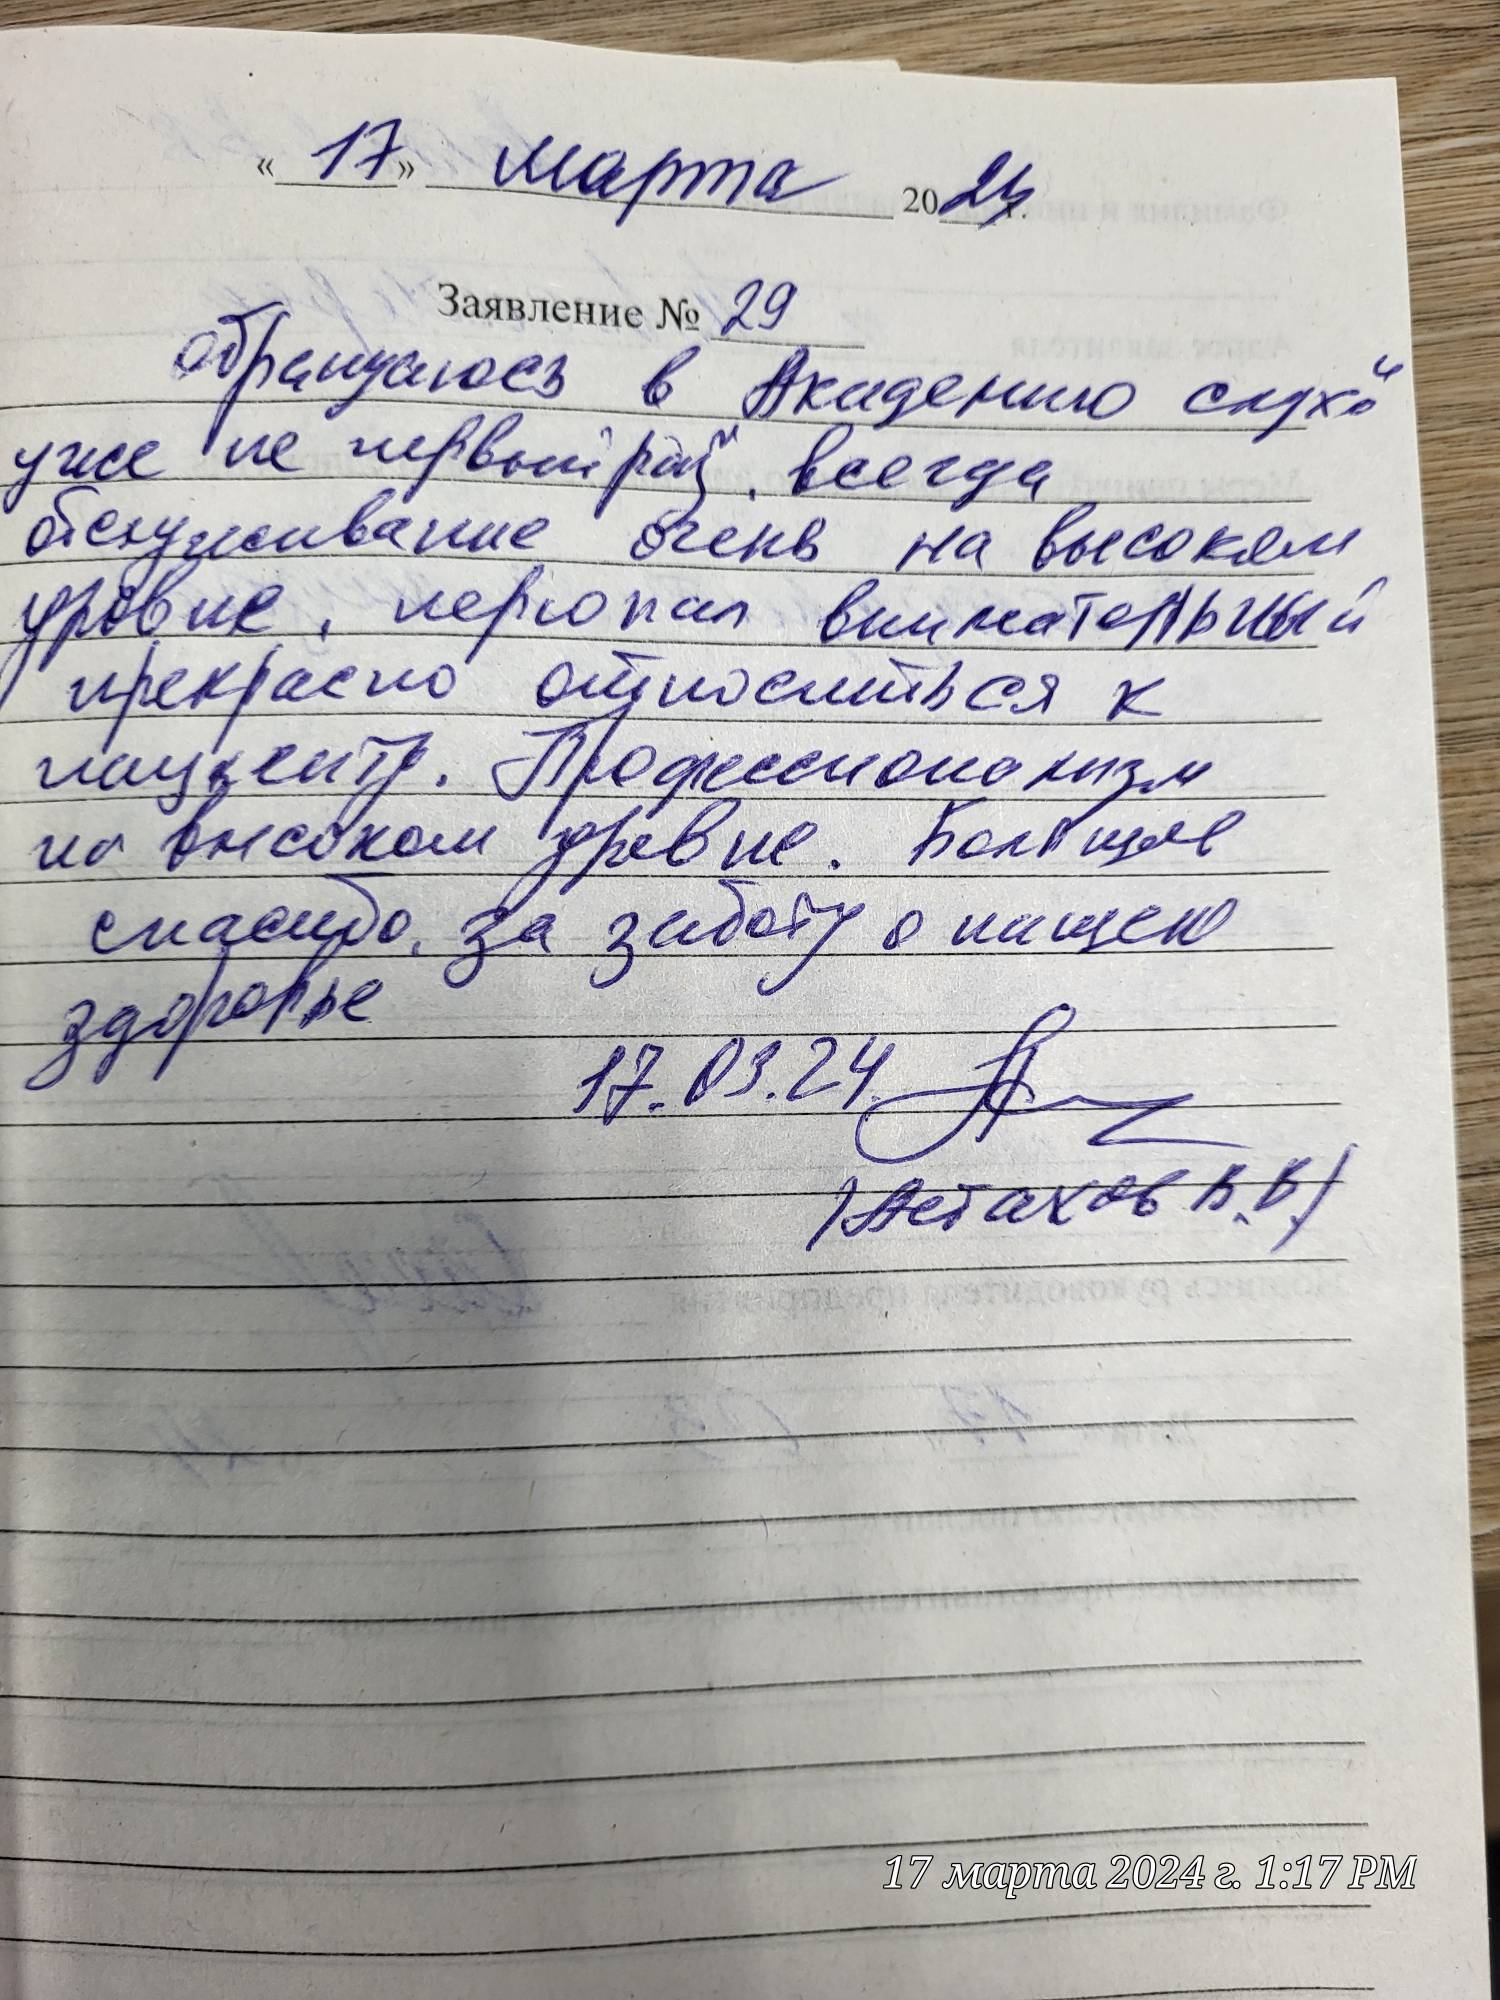 «17» марта 2024 г.
Заявление № 29
Обращаюсь в Академию слуха
уже не первый раз, всегда
обслуживание очень на высоком
уровне, персонал внимательный
прекрасно относиться к
пациенту. Профессионализм
на высоком уровне. Большое
спасибо, за заботу о нашем
здоровье
17.03.24.
/Астахов В.В./
17 марта 2024 г. 1:17 PM